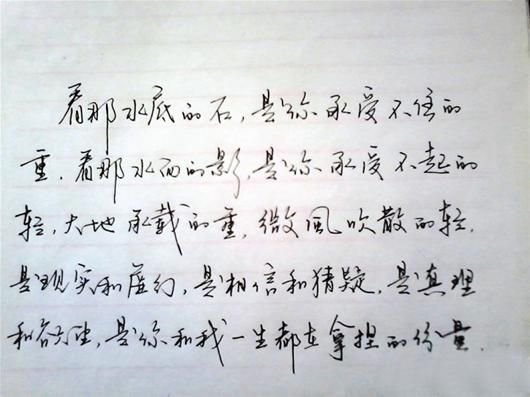 看那水底的石,是你承受不住的
重.看那水面的影,是你承受不起的
轻,大地承载的重,微風吹散的轻.
是现实和虚幻,是相信和猜疑,是真理
和欲望,是你和我一生都在拿捏的份量.